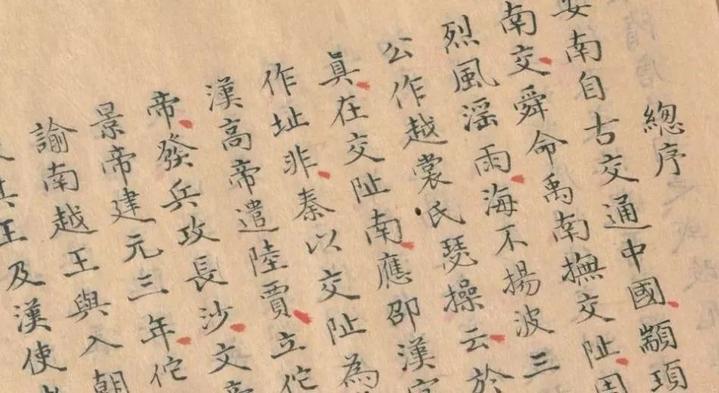 總序
安南自古交通中國顓頊
南交舜命禹南撫交趾周
烈風滛雨海不揚波三
公作越裳氏瑟操云於
眞在交趾南應邵漢
作址非秦以交趾為
漢高帝遣陸賈立佗
帝發兵攻長沙文帝
景帝建元三年佗
諭南越王與入朝
其王及漢使